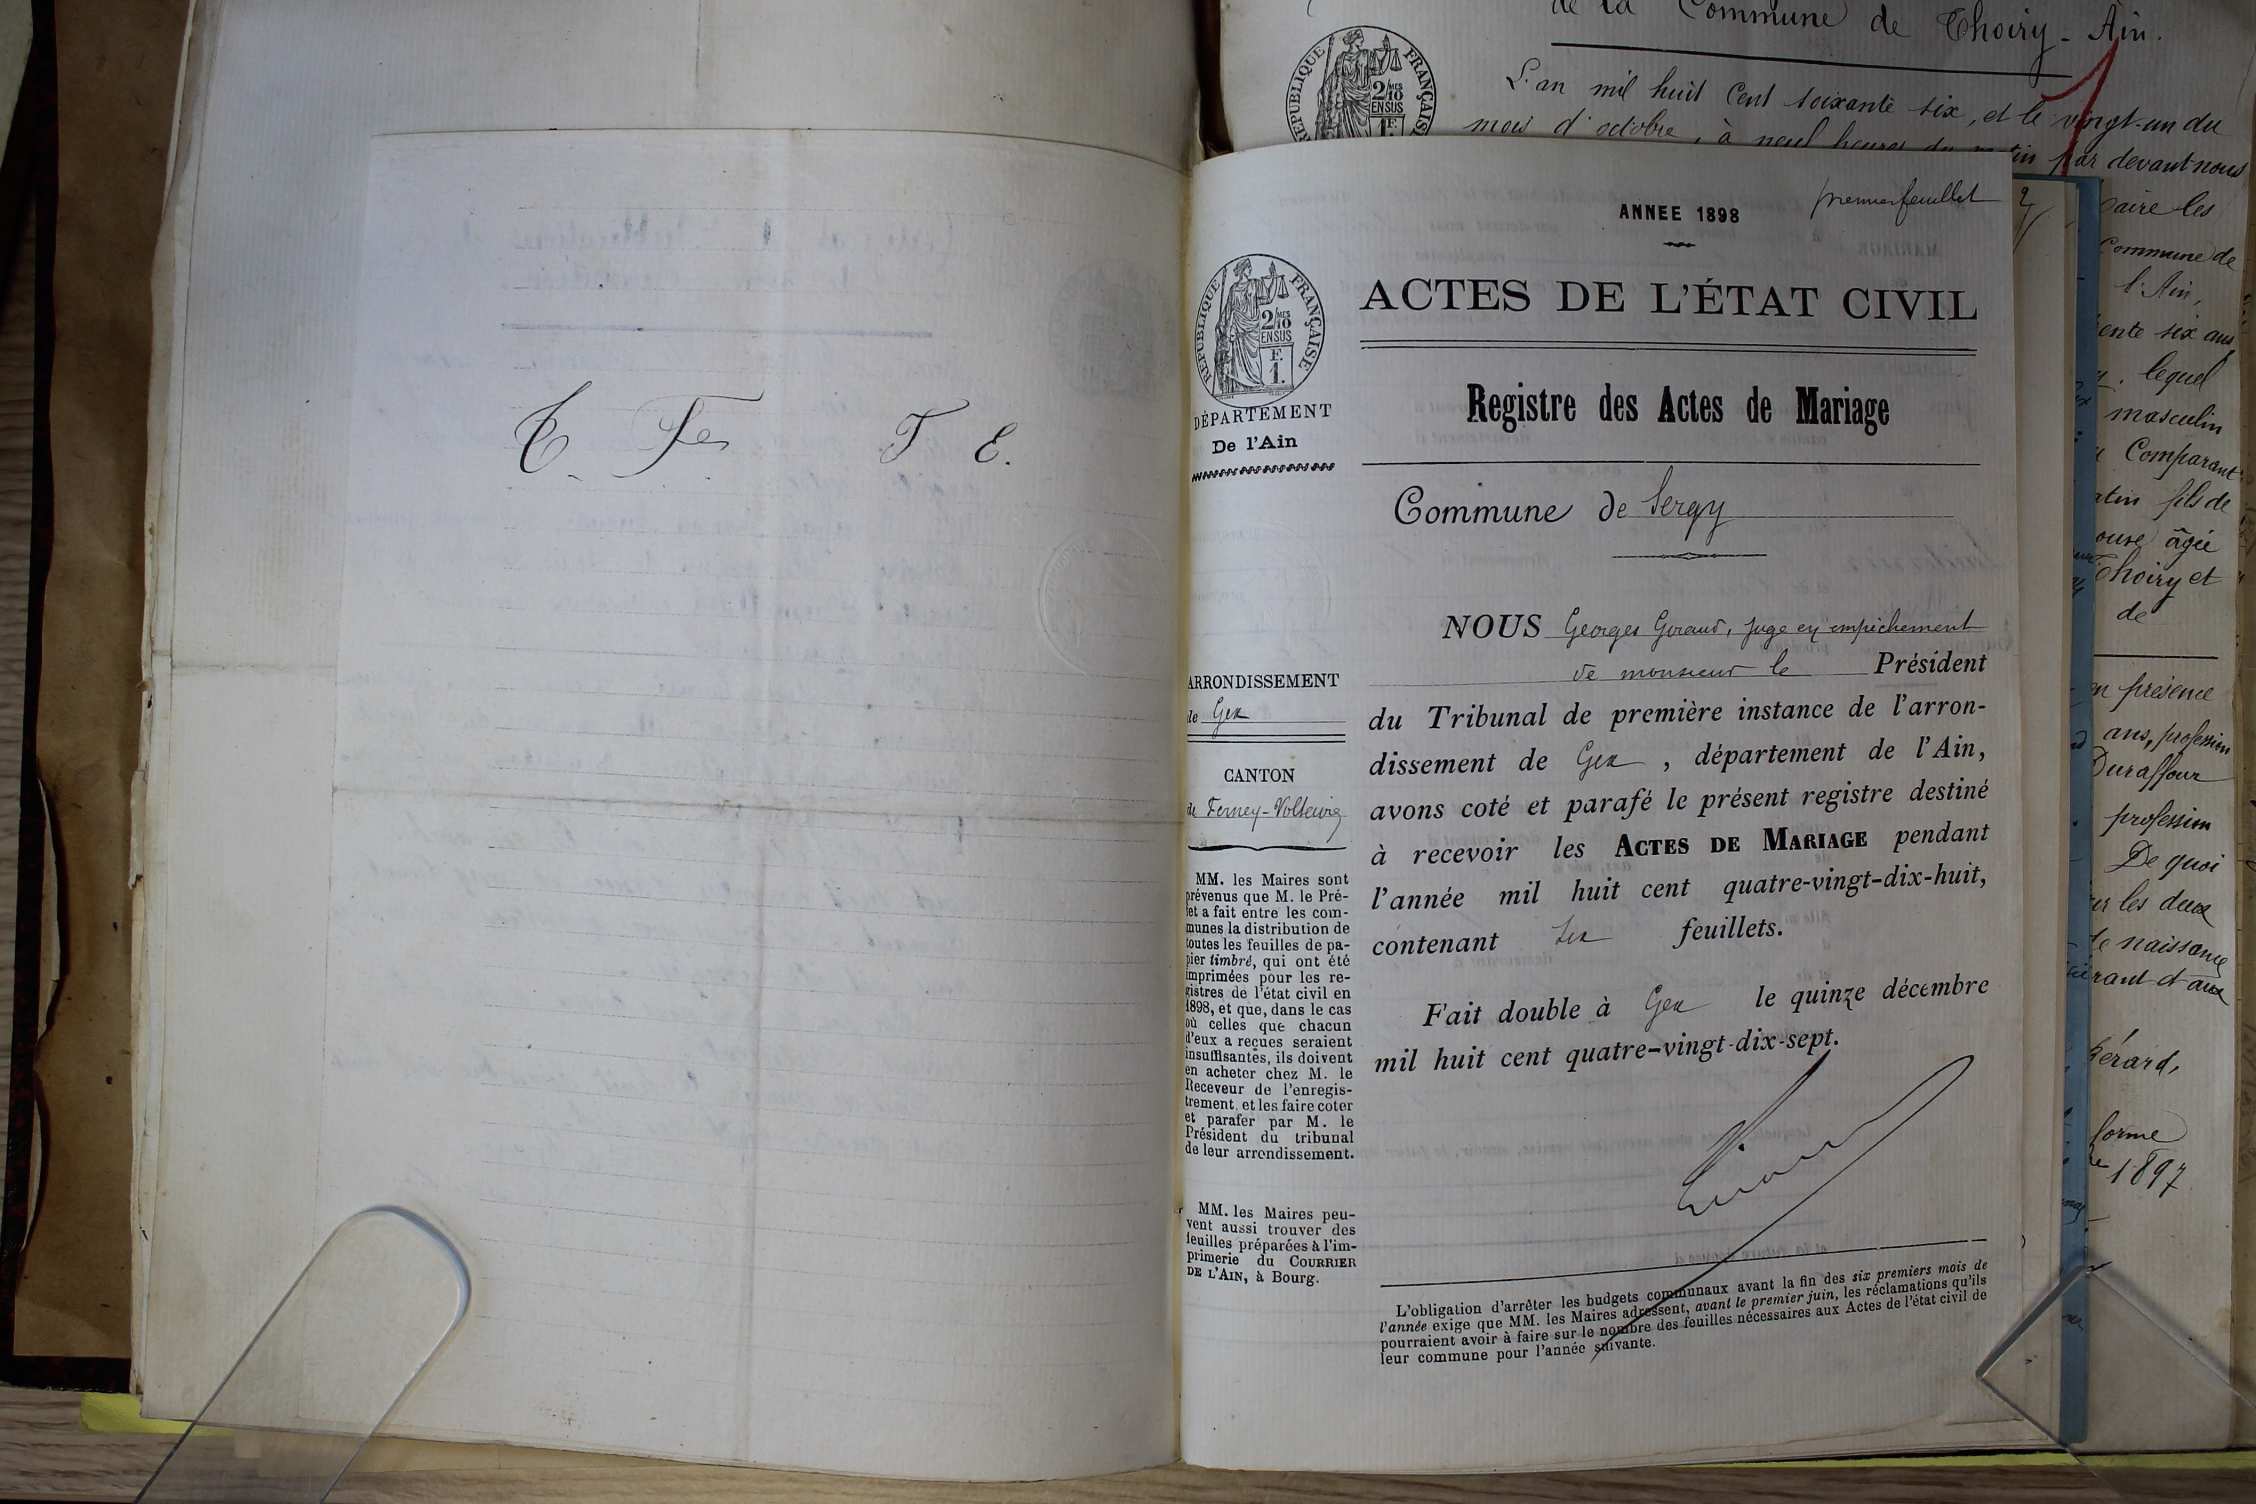 de la Commune de Thoiry - Ain.
L'an mil huit cent soixante six, et le vingt-un du
mois d'octobre, à neuf heures du matin par devant nous
RÉPUBLIQUE FRANÇAISE
2/10 MES
EN SUS
1 F.
Maire les
Commune de
l'Ain,
trente six ans
lequel
masculin
Comparant
fils de
âgée
Thoiry et
de
en présence
ans, profession
Duraffour
profession
De quoi
les deux
de naissance
et aux
Gérard,
forme
1897
T. E.
premier feuillet
2
ANNEE 1898
ACTES DE L'ÉTAT CIVIL
RÉPUBLIQUE FRANÇAISE
2/10 MES
EN SUS
F.
1.
DÉPARTEMENT
De l'Ain
Registre des Actes de Mariage
Commune de Sergy
ARRONDISSEMENT
de Gex
CANTON
de Ferney-Voltaire
MM. les Maires sont
prévenus que M. le Pré-
fet a fait entre les com-
munes la distribution de
toutes les feuilles de pa-
pier timbré, qui ont été
imprimées pour les re-
gistres de l'état civil en
1898, et que, dans le cas
où celles que chacun
d'eux a reçues seraient
insuffisantes, ils doivent
en acheter chez M. le
Receveur de l'enregis-
trement, et les faire coter
et parafer par M. le
Président du tribunal
de leur arrondissement.
MM. les Maires peu-
vent aussi trouver des
feuilles préparées à l'im-
primerie du COURRIER
DE L'AIN, à Bourg.
NOUS Georges Giraud, juge en empêchement
de monsieur le Président
du Tribunal de première instance de l'arron-
dissement de Gex, département de l'Ain,
avons coté et parafé le présent registre destiné
à recevoir les ACTES DE MARIAGE pendant
l'année mil huit cent quatre-vingt-dix-huit,
contenant six feuillets.
Fait double à Gex le quinze décembre
mil huit cent quatre-vingt-dix-sept.
L'obligation d'arrêter les budgets communaux avant la fin des six premiers mois de
l'année exige que MM. les Maires adressent, avant le premier juin, les réclamations qu'ils
pourraient avoir à faire sur le nombre des feuilles nécessaires aux Actes de l'état civil de
leur commune pour l'année suivante.